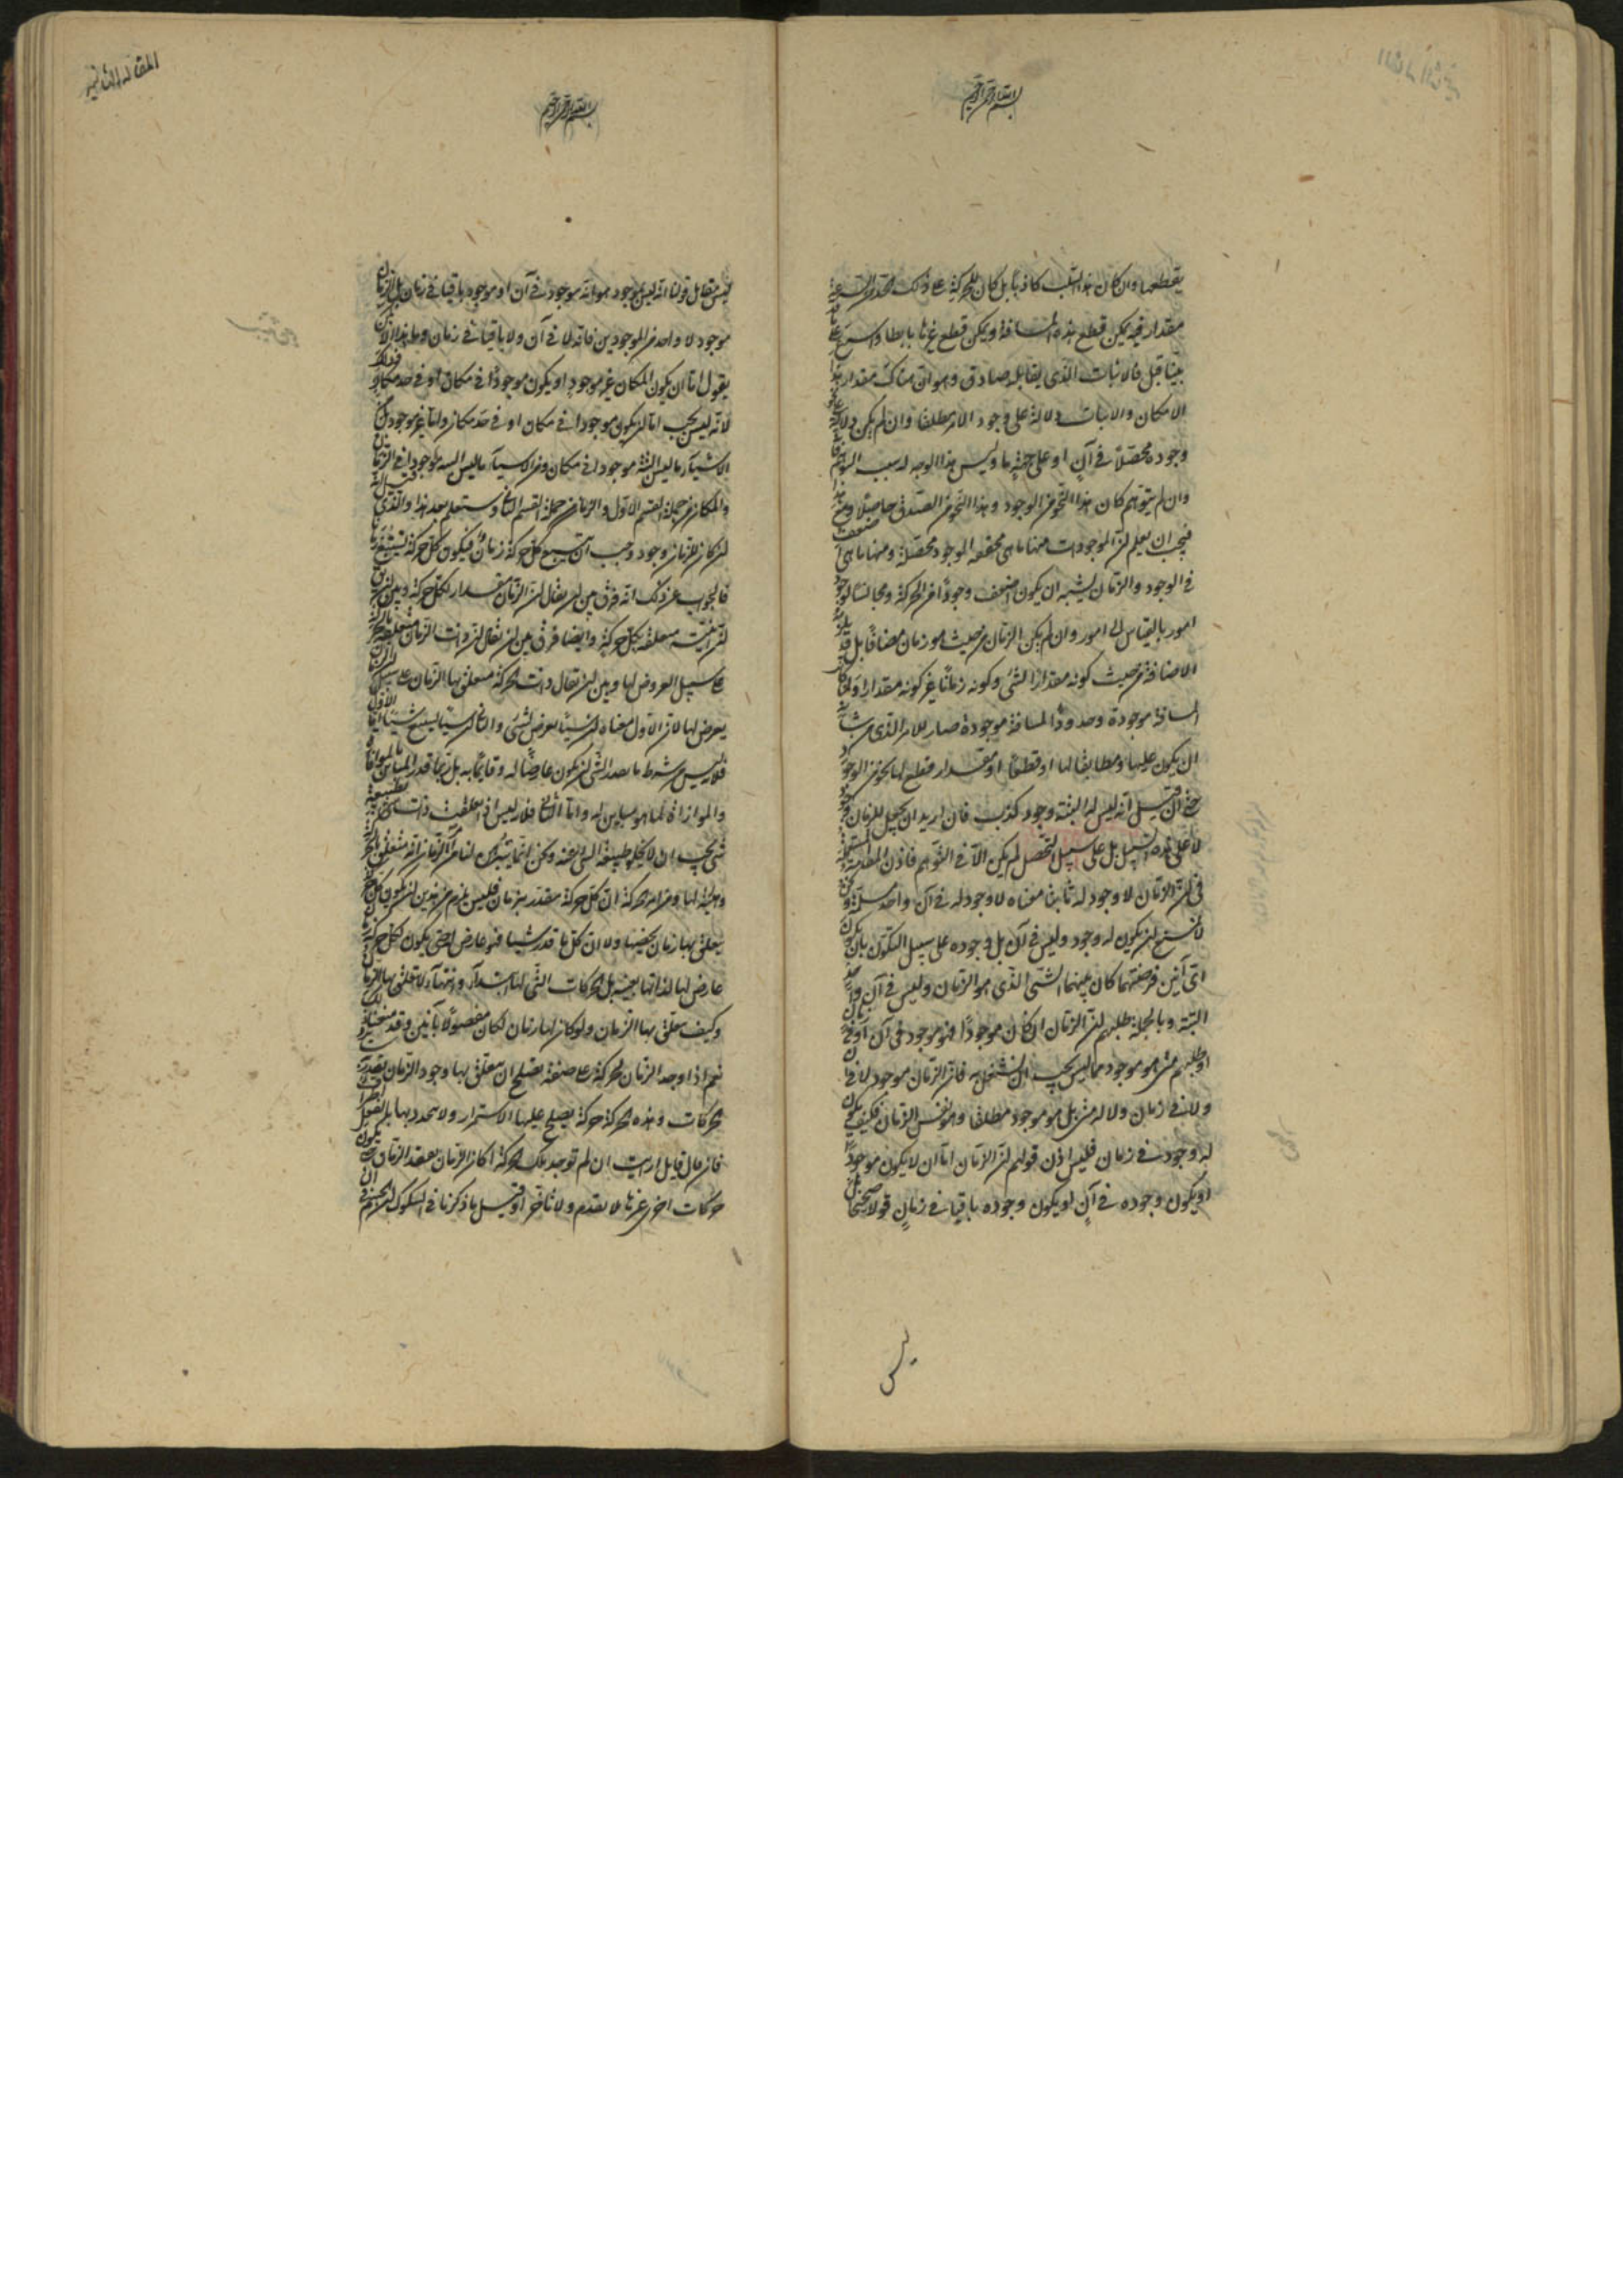 بسم الله الرحمن الرحيم
يقطعها وان كان هذا السلب كاذبا بل كان للحركة على ذلك الحد من السرعة
مقدار فيه يمكن قطع هذه المسافة ويمكن قطع غيرها بابطا واسرع على ما قد
بينا قبل فالاثبات الذي يقابله صادق وهو ان هناك مقدار هذا
الامكان والاثبات دلالة على وجود الامر مطلقا وان لم يكن دلالة على نحو
وجوده محصلا في آن او على جهة ما وليس هذا الوجه له بسبب التوهم فانه
وان لم يتوهم كان هذا النحو من الوجود وهذا النحو من الصدق حاصلا ومع هذا
فيجب ان يعلم ان الموجودات منها ما هي محققة الوجود محصلة ومنها ما هي اضعف
في الوجود والزمان يشبه ان يكون اضعف وجودا من الحركة ومجانسا لوجود
امور بالقياس الى امور وان لم يكن الزمان من حيث هو زمان مضافا بل قد يلزمه
الاضافة من حيث كونه مقدارا لشئ وكونه زمانا غير كونه مقدارا ولما كانت
المسافة موجودة وحدود المسافة موجودة صار الامر الذي من شانه
ان يكون عليها ومطابقا لها او قطعا او مقدار قطع لها نحو من الوجود
حتى ان قيل انه ليس له البتة وجود كذب فان اريد ان يجعل للزمان وجود
لا على هذه السبيل بل على سبيل التحصل لم يكن الا في التوهم فاذن المقدمة المستعملة
في ان الزمان لا وجود له ثابتا معناه لا وجود له في آن واحد مسلمة ونحن
لا نمنع ان يكون له وجود وليس في آن بل وجوده على سبيل التكون بان يكون
اي آنين فرضتهما كان بينهما الشئ الذي هو الزمان وليس في آن واحد
البتة وبالجملة طلبهم ان الزمان ان كان موجودا فهو موجود في آن او في زمان
او طلبهم متى هو موجود مما ليس يجب ان نشتغل به فان الزمان موجود لا في آن
ولا في زمان ولا له متى بل هو موجود مطلقا وهو نفس الزمان فكيف يكون
له وجود في زمان فليس اذن قولهم ان الزمان اما ان لا يكون موجودا
او يكون وجوده في آن او يكون وجوده باقيا في زمان قولا صحيحا بل
ليس
المقالة الثانية
بسم الله الرحمن الرحيم
ليس مقابل قولنا انه ليس بموجود هو انه موجود في آن او موجود باقيا في زمان بل الزمان
موجود لا واحد من الموجودين فانه لا في آن ولا باقيا في زمان وما هذا الا كمن
يقول اما ان يكون المكان غير موجود او يكون موجودا في مكان او في حد مكان وذلك
لانه ليس يجب اما ان يكون موجودا في مكان او في حد مكان واما غير موجود بل من
الاشياء ما ليس البتة موجودا في مكان ومن الاشياء ما ليس البته موجودا في الزمان
والمكان من جملة القسم الاول والزمان من جملة القسم الثاني وستعلم بعد هذا والذي قيل انه
ان كان للزمان وجود وجب ان يتبع كل حركة زمان فيكون كل حركة تستتبع زمانا
فالجواب عن ذلك انه فرق بين ان يقال ان الزمان مقدار لكل حركة وبين ان يقال
ان انيته متعلقة بكل حركة وايضا فرق بين ان يقال ان ذات الزمان متعلقة بالحركة
على سبيل العروض لها وبين ان يقال ذات الحركة متعلق بها الزمان على سبيل ان الزمان
يعرض لها لان الاول معناه ان شيئا يعرض لشئ والثاني ان شيئا يستتبع شيئا اما الاول
فلانه ليس من شرط ما يقدر الشئ ان يكون عارضا له وقائما به بل ربما قدر المباين بالموافاة
والموازاة لما هو مباين له واما الثاني فلانه ليس اذا تعلقت ذات شئ بطبيعة
شئ يجب ان لا يخلو طبيعة الشئ عنه ونحن انما يتبرهن لنا من امر الزمان انه متعلق بالحركة
وهيئة لها ومن امر الحركة ان كل حركة مقدر بزمان فليس يلزم من هذين ان يكون كل حركة
يتعلق بها زمان يخصها ولا ان كل ما قدر شيئا فهو عارض له حتى يكون لكل حركة زمان
عارض لها لذاتها بعينه بل الحركات التي لها ابتداء وانتهاء لا يتعلق بها الزمان
وكيف يتعلق بها الزمان ولو كان لها زمان لكان مفصولا بآنين وقد منعنا ذلك
نعم اذا وجد الزمان لحركة على صفة يصلح ان يتعلق بها وجود الزمان يقدر به سائر
الحركات وهذه الحركة حركة يصلح عليها الاستمرار ولا يتحدد بها بالفعل اطراف
فان قال قايل ارايت ان لم توجد تلك الحركة اكان الزمان يفقد الزمان حتى يكون
حركات اخرى غيرها لا تقدم ولا تاخر او قيل ما ذكرنا في الشكوك ان الجسم في ان